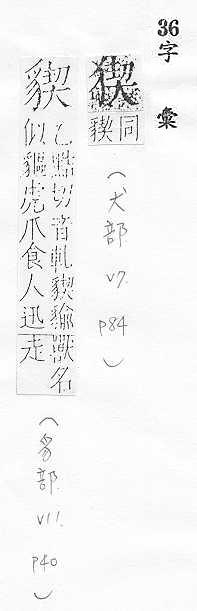 36 字彙
猰
同
䝟
(犬部 V7 P84)
䝟
乙黠切音軋䝟貐獸名
似貙虎爪食人迅走
(豸部 V11 P40)